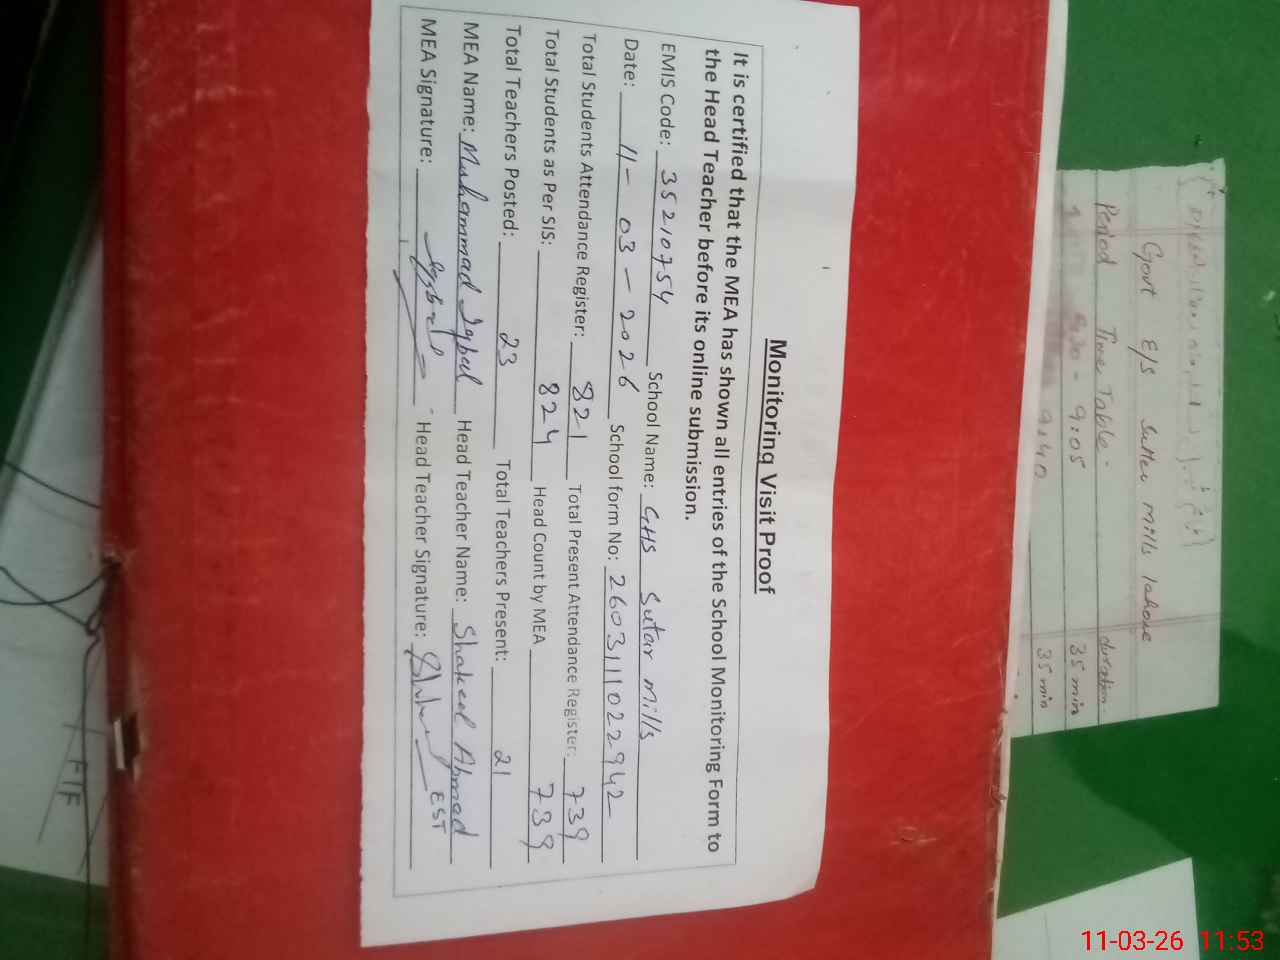 Monitoring Visit Proof
It is certified that the MEA has shown all entries of the School Monitoring Form to
the Head Teacher before its online submission.
EMIS Code: 35210754 School Name: GHS Sutar Mills
Date: 11-03-2026 School form No: 260311022942
Total Students Attendance Register: 821 Total Present Attendance Register: 739
Total Students as Per SIS: 824 Head Count by MEA 739
Total Teachers Posted: 23 Total Teachers Present: 21
MEA Name: Muhammad Iqbal Head Teacher Name: Shakeel Ahmad
MEA Signature: Iqbal Head Teacher Signature: EST
Govt E/S Sutter Mills lahore
Period Time Table. duration
1 8:30 - 9:05 35 min
9:40 35 min
FTF
11-03-26 11:53